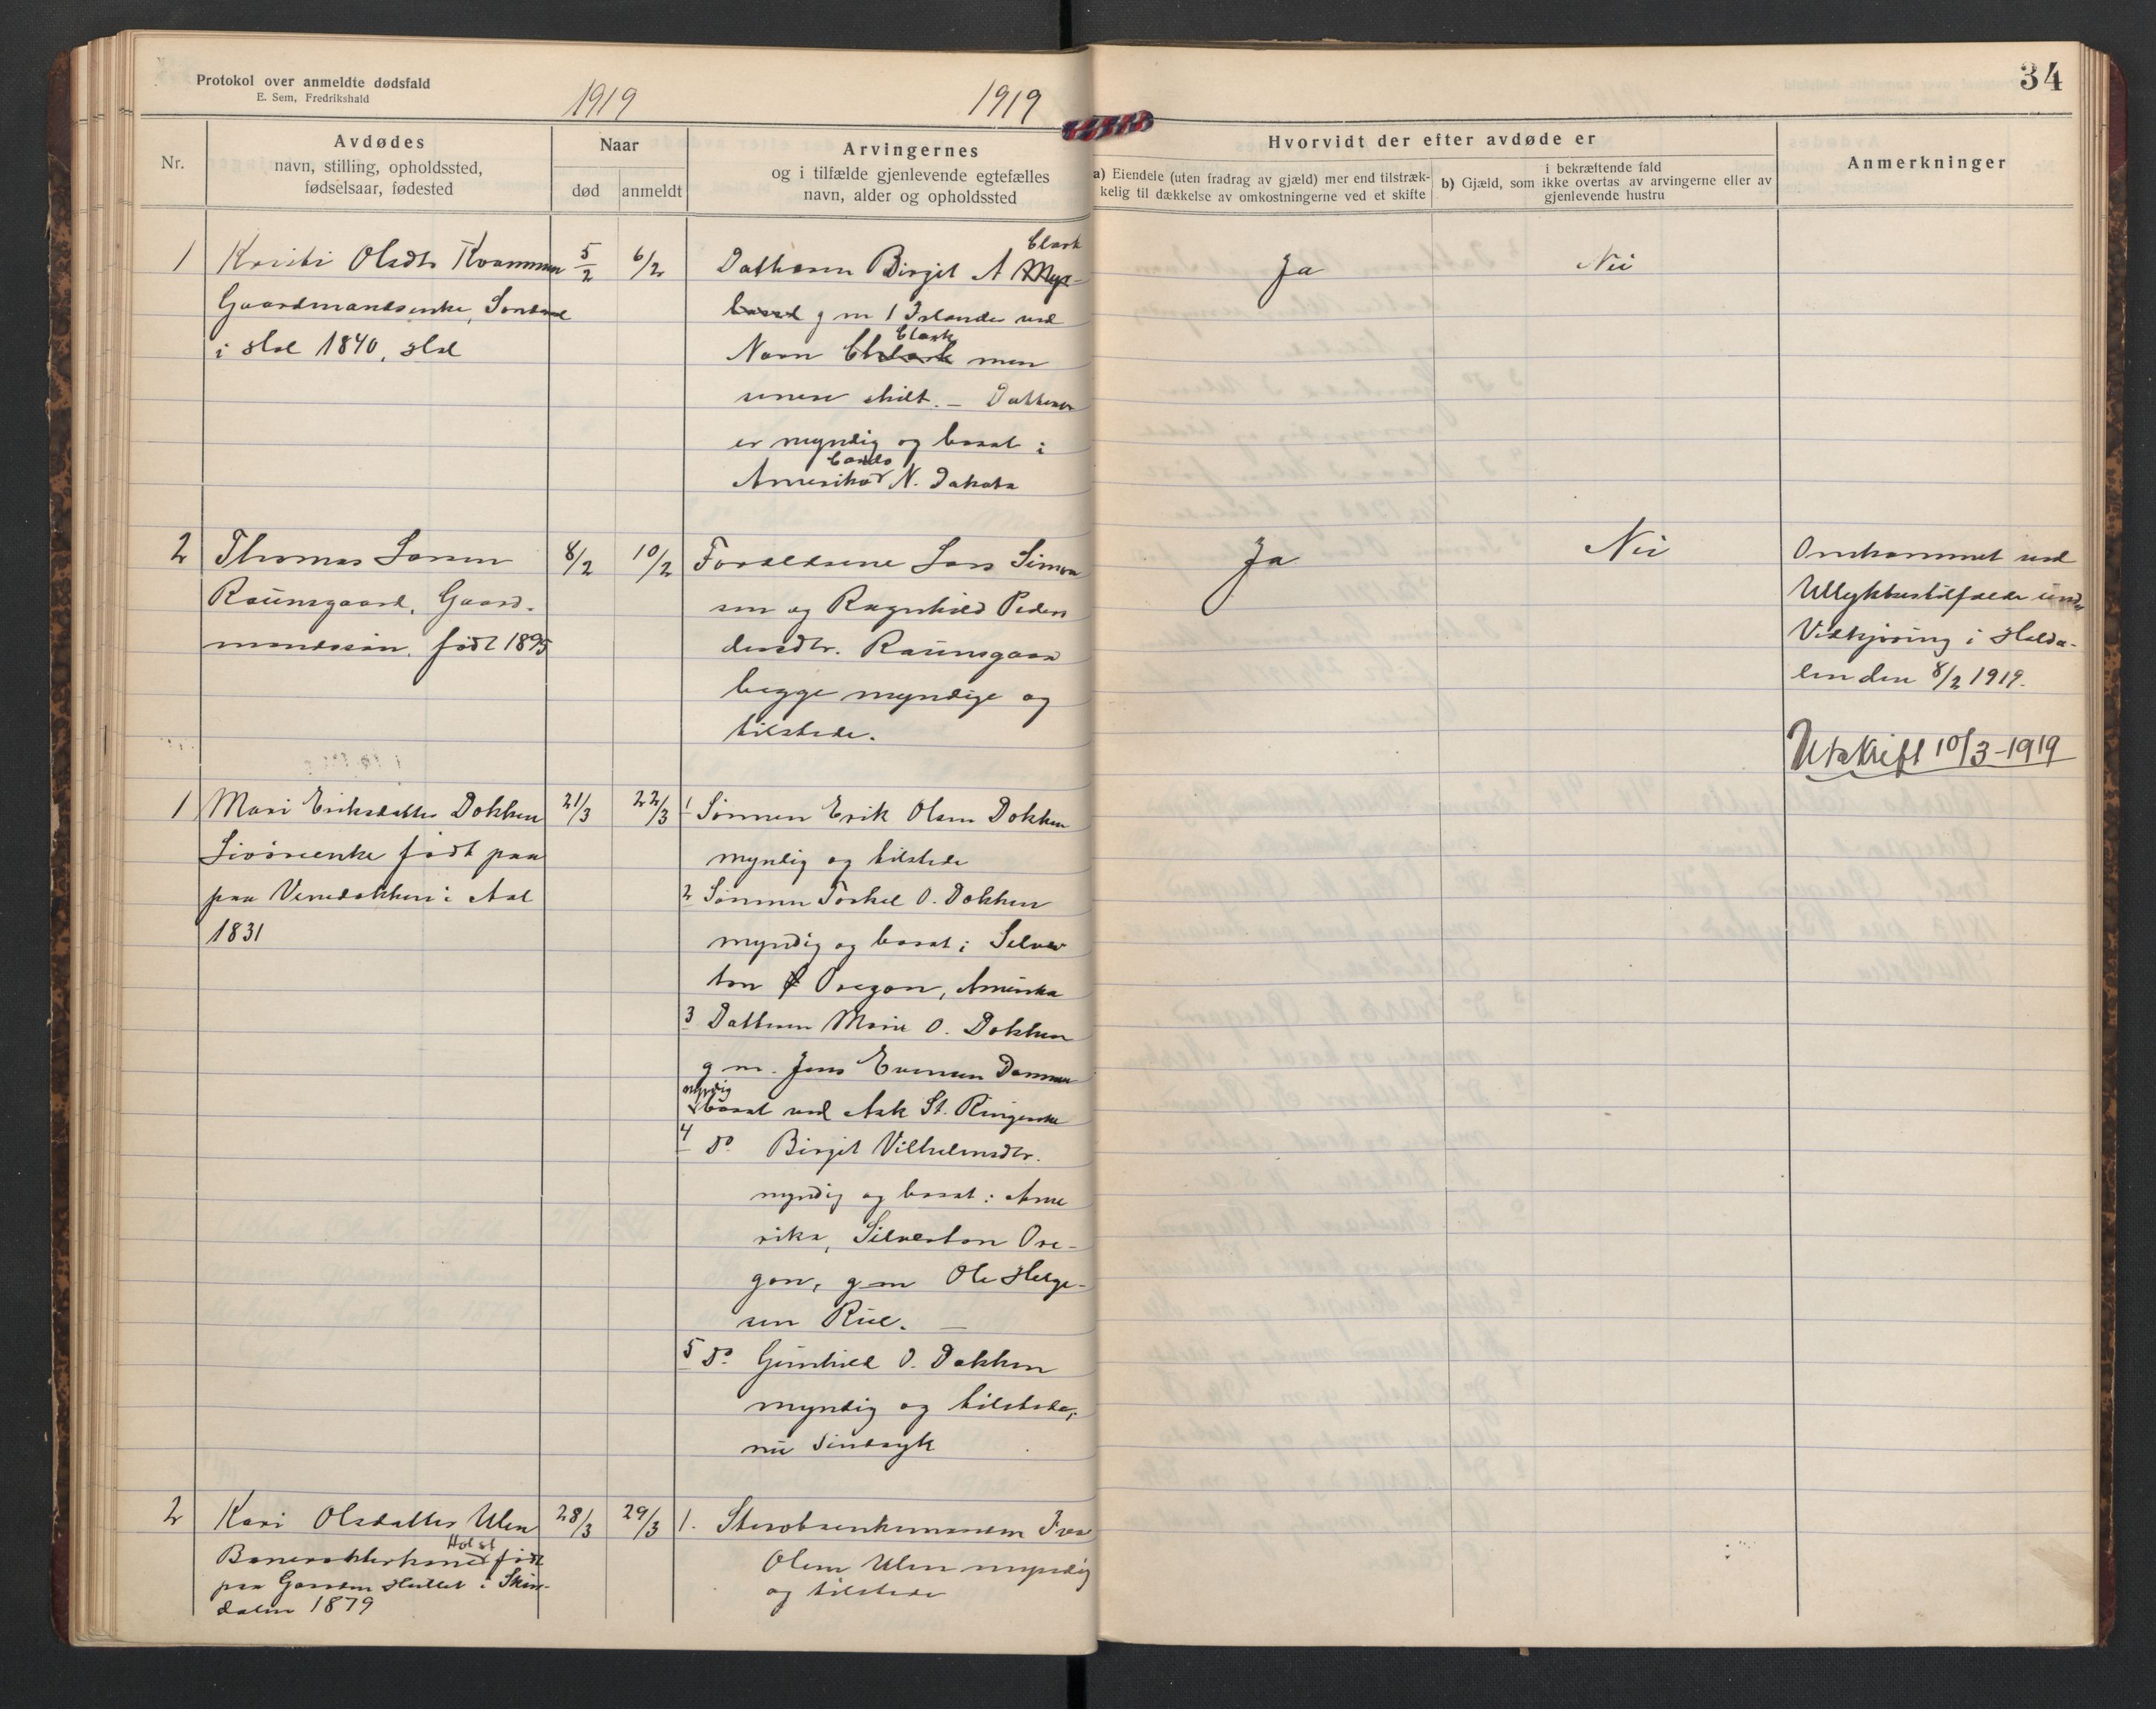 Protokol over anmeldte dødsfald
E. Sem, Fredrikshald
1919
1919
34
Nr.
Avdødes
navn, stilling, opholdssted,
fødselsaar, fødested
Naar
død
anmeldt
Arvingernes
og i tilfælde gjenlevende egtefælles
navn, alder og opholdssted
Hvorvidt der efter avdøde er
a) Eiendele (uten fradrag av gjæld) mer end tilstræk-
kelig til dækkelse av omkostningerne ved et skifte
i bekræftende fald
b) Gjæld, som ikke overtas av arvingerne eller av
gjenlevende hustru
Anmerkninger
1
Kristi Olsdtr Kvammen
Gaardmandsenke,
i Hol 1840, Hol
5/2
6/2
Clark
Datteren Birgit A Myr-
g m 1 Islænder ved
Clark
Navn men
senere skilt. – Datteren
er myndig og bosat i
Cando
Amerika N. Dakota
Ja
Nei
2
Thomas Larsen
Raunsgaard, Gaard-
mandssøn, født 1895
8/2
10/2
Forældrene Lars Simon
sen og Ragnhild Peders
dersdtr. Raunsgaard
begge myndige og
tilstede.
Ja
Nei
Omkommet ved
Ulykkestilfælde under
Vedkjøring i Holda-
len den 8/2 1919.
Utskrift 10/3-1919
1
Mari Eriksdatter Dokken
Livøreenke født paa
paa Veredokken i Aal
1831
21/3
22/3
1 Sønnen Erik Olsen Dokken
myndig og tilstede
2 Sønnen Torkel O. Dokken
myndig og bosat i Silver
ton Oregon, Amerika
3 Datteren Marie O. Dokken
g m. Jens Evensen
myndig
bosat ved Ask St. Ringerike
4 Do Birgit Vilhelmsdtr.
myndig og bosat i Ame
rika, Silverton Ore-
gon, g m Ole Helge-
sen Rue. –
5 Do. Gunhild O. Dokken
myndig og tilstede,
nu Sindsyk
2
Kari Olsdatter Ulen
Holst
Banevokterkone født
paa Garden Hullet i Skur-
dalen 1879
28/3
29/3
1. Stervboenkemanden Iver
Olsen Ulen myndig
og tilstede